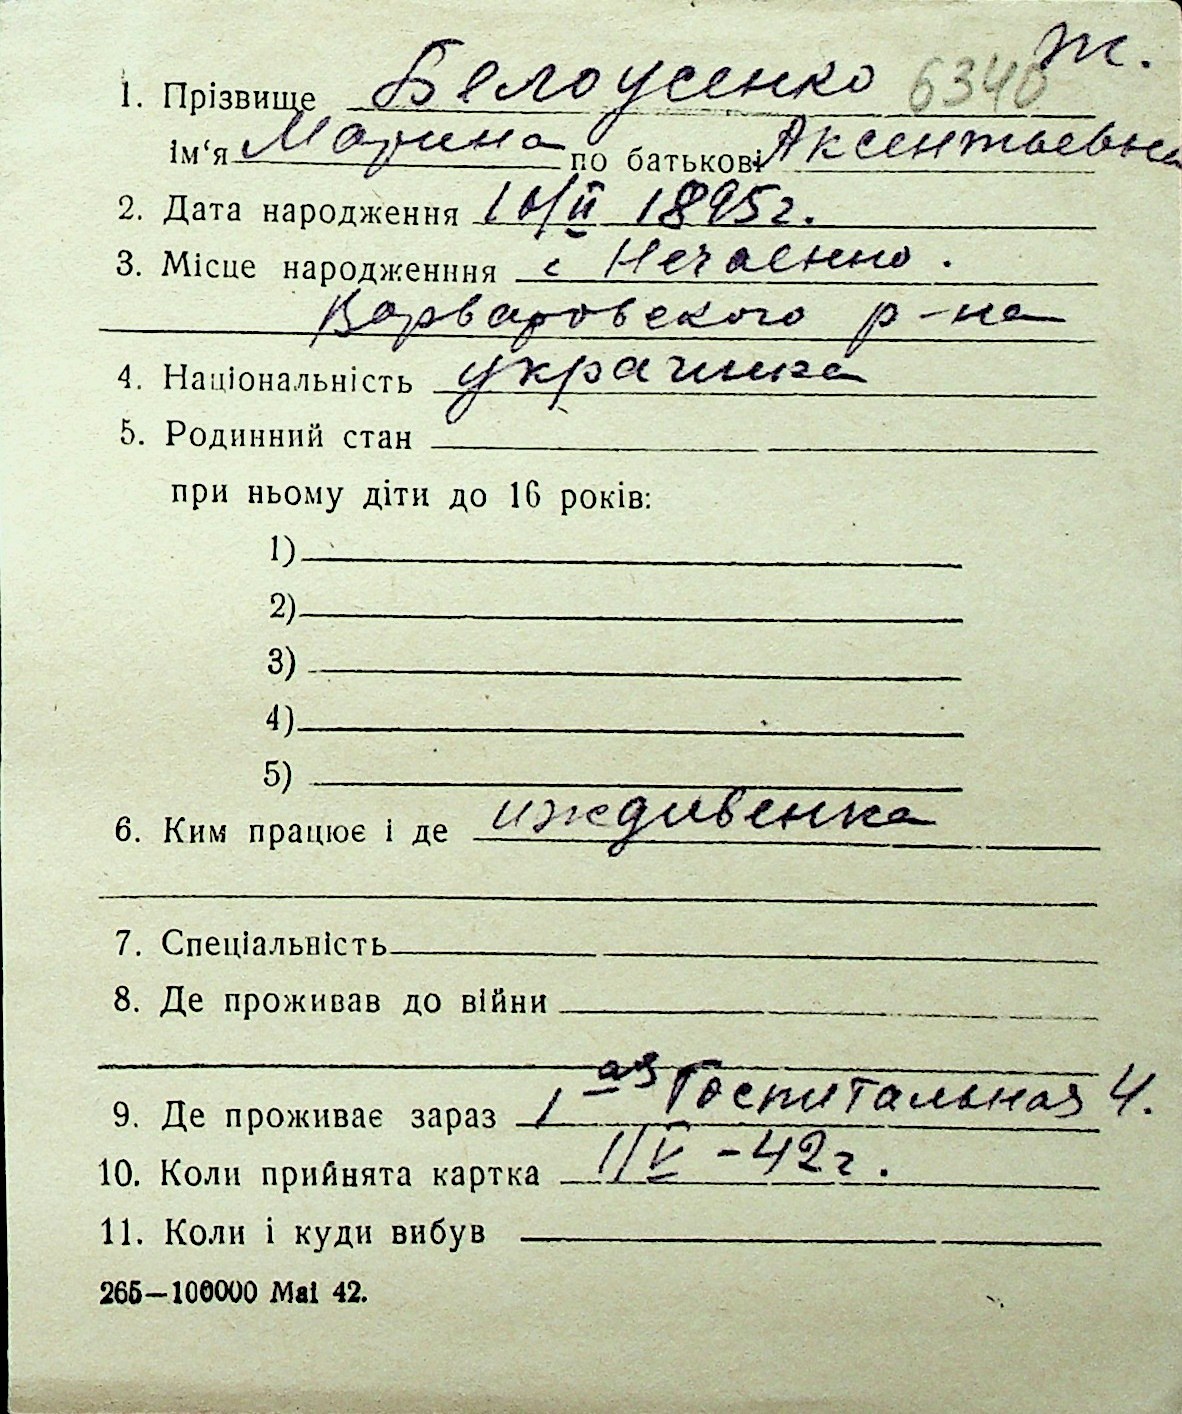 Ж.
1. Прізвище Белоусенко 6340
ім'я Марина по батькові Аксентьевна
2. Дата народження 10/II 1895г.
3. Місце народженння с Нечаенно.
Варваровского р-на
4. Національність украинка
5. Родинний стан
при ньому діти до 16 років:
1)
2)
3)
4)
5)
6. Ким працює і де иждивенка
7. Спеціальність
8. Де проживав до війни
9. Де проживає зараз 1ая Госпитальная 4.
10. Коли прийнята картка 1/V-42г.
11. Коли і куди вибув
265—100000 Mai 42.